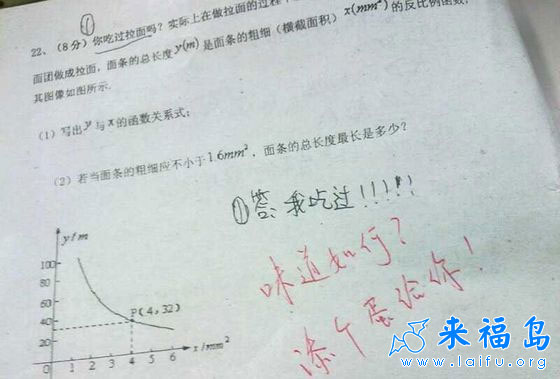 ①
22、(8分)你吃过拉面吗？实际上在做拉面的过程
面团做成拉面，面条的总长度y(m)是面条的粗细(横截面积)x(mm²)的反比例函数，
其图像如图所示.
(1)写出y与x的函数关系式；
(2)若当面条的粗细应不小于1.6mm²，面条的总长度最长是多少？
①答：我吃过!!!!!
味道如何？
添个蛋给你！
y/m
100
80
60
40
20
P(4,32)
0 1 2 3 4 5 6 x/mm²
来福岛
www.laifu.org